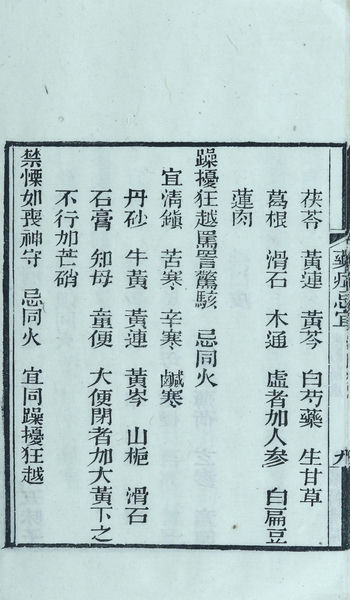 藥病忌宜
九
茯苓 黃連 黃芩 白芍藥 生甘草
葛根 滑石 木通 虛者加人參 白扁豆
蓮肉
躁擾狂越罵詈驚駭 忌同火
宜清鎮 苦寒 辛寒 鹹寒
丹砂 牛黃 黃連 黃岑 山梔 滑石
石膏 知母 童便 大便閉者加大黃下之
不行加芒硝
禁慄如喪神守 忌同火 宜同躁擾狂越